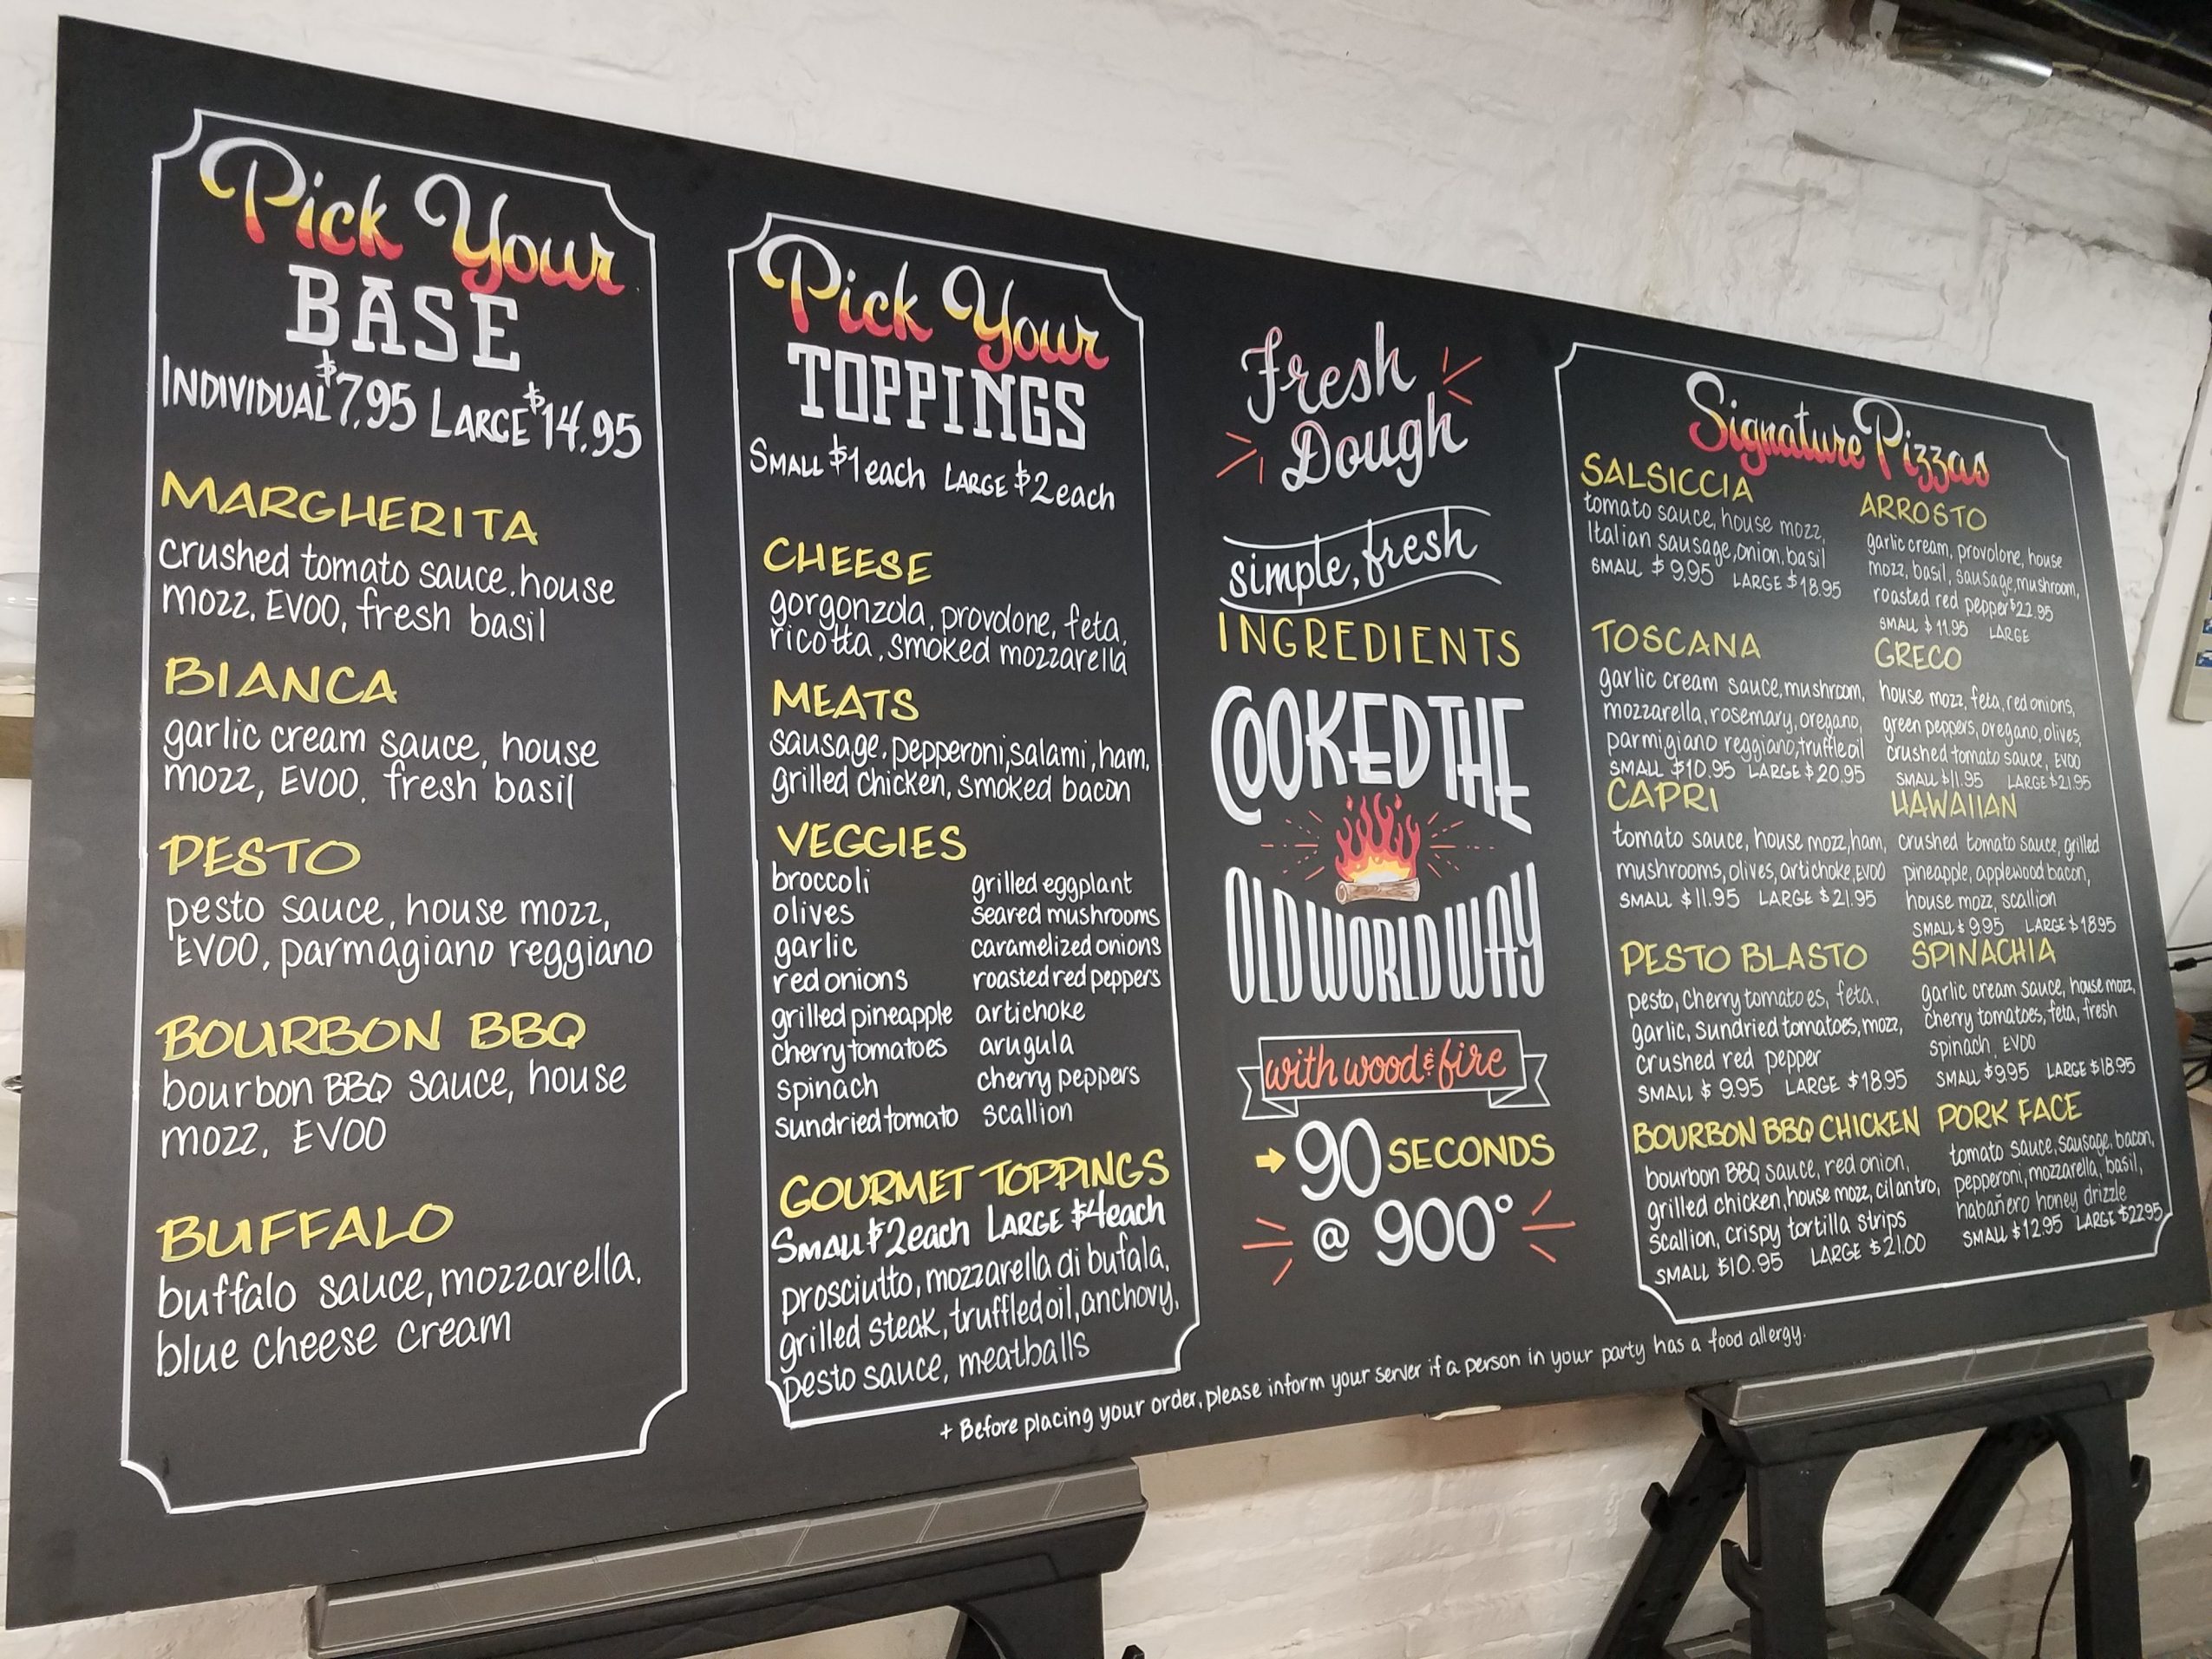 Pick Your
BASE
INDIVIDUAL $7.95 LARGE $14.95
MARGHERITA
crushed tomato sauce, house
mozz, EVOO, fresh basil
BIANCA
garlic cream sauce, house
mozz, EVOO, fresh basil
PESTO
pesto sauce, house mozz,
EVOO, parmagiano reggiano
BOURBON BBQ
bourbon BBQ sauce, house
mozz, EVOO
BUFFALO
buffalo sauce, mozzarella,
blue cheese cream
Pick Your
TOPPINGS
SMALL $1 each LARGE $2 each
CHEESE
gorgonzola, provolone, feta,
ricotta, smoked mozzarella
MEATS
sausage, pepperoni, salami, ham,
grilled chicken, smoked bacon
VEGGIES
broccoli
olives
garlic
red onions
grilled pineapple
cherry tomatoes
spinach
sundried tomato
grilled eggplant
seared mushrooms
caramelized onions
roasted red peppers
artichoke
arugula
cherry peppers
scallion
GOURMET TOPPINGS
SMALL $2 each LARGE $4 each
prosciutto, mozzarella di bufala,
grilled steak, truffled oil, anchovy,
pesto sauce, meatballs
Fresh
Dough
simple, fresh
INGREDIENTS
COOKED THE
OLD WORLD WAY
with wood & fire
90 SECONDS
@ 900°
Signature Pizzas
SALSICCIA
tomato sauce, house mozz,
Italian sausage, onion, basil
SMALL $9.95 LARGE $18.95
TOSCANA
garlic cream sauce, mushroom,
mozzarella, rosemary, oregano,
parmigiano reggiano, truffle oil
SMALL $10.95 LARGE $20.95
CAPRI
tomato sauce, house mozz, ham,
mushrooms, olives, artichoke, EVOO
SMALL $11.95 LARGE $21.95
PESTO BLASTO
pesto, cherry tomatoes, feta,
garlic, sundried tomatoes, mozz,
crushed red pepper
SMALL $9.95 LARGE $18.95
BOURBON BBQ CHICKEN
bourbon BBQ sauce, red onion,
grilled chicken, house mozz, cilantro,
scallion, crispy tortilla strips
SMALL $10.95 LARGE $21.00
ARROSTO
garlic cream, provolone, house
mozz, basil, sausage, mushroom,
roasted red pepper $22.95
SMALL $11.95 LARGE
GRECO
house mozz, feta, red onions,
green peppers, oregano, olives,
crushed tomato sauce, EVOO
SMALL $11.95 LARGE $21.95
HAWAIIAN
crushed tomato sauce, grilled
pineapple, applewood bacon,
house mozz, scallion
SMALL $9.95 LARGE $18.95
SPINACHIA
garlic cream sauce, house mozz,
cherry tomatoes, feta, fresh
spinach, EVOO
SMALL $9.95 LARGE $18.95
PORK FACE
tomato sauce, sausage, bacon,
pepperoni, mozzarella, basil,
habañero honey drizzle
SMALL $12.95 LARGE $22.95
+ Before placing your order, please inform your server if a person in your party has a food allergy.